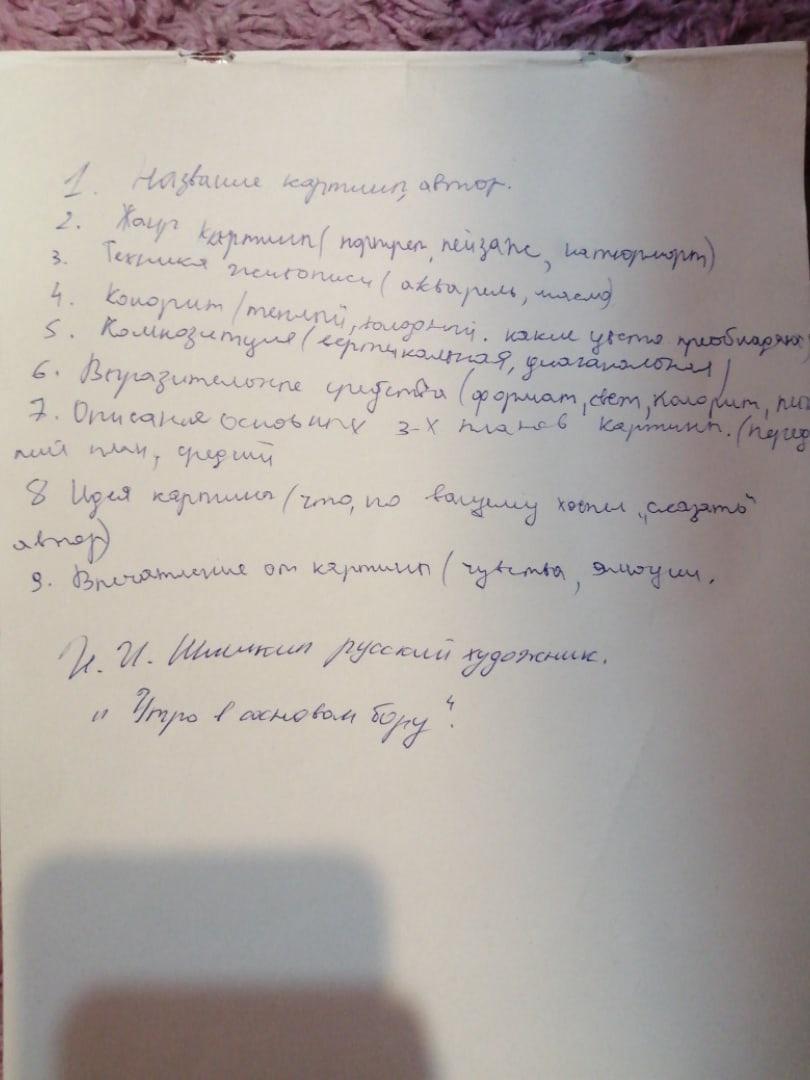 1. Название картины, автор.
2. Жанр картины (портрет, пейзаж, натюрморт)
3. Техника живописи (акварель, масло)
4. Колорит (теплый, холодный. какие цвета преобладают
5. Композиция (вертикальная, диагональная)
6. Выразительные средства (формат, свет, колорит,
7. Описания основных 3-х планов картины. (перед
ний план, средний
8 Идея картины (что, по вашему хотел „сказать"
автор)
9. Впечатление от картины (чувства, эмоции.
И. И. Шишкин русский художник.
„Утро в сосновом бору".